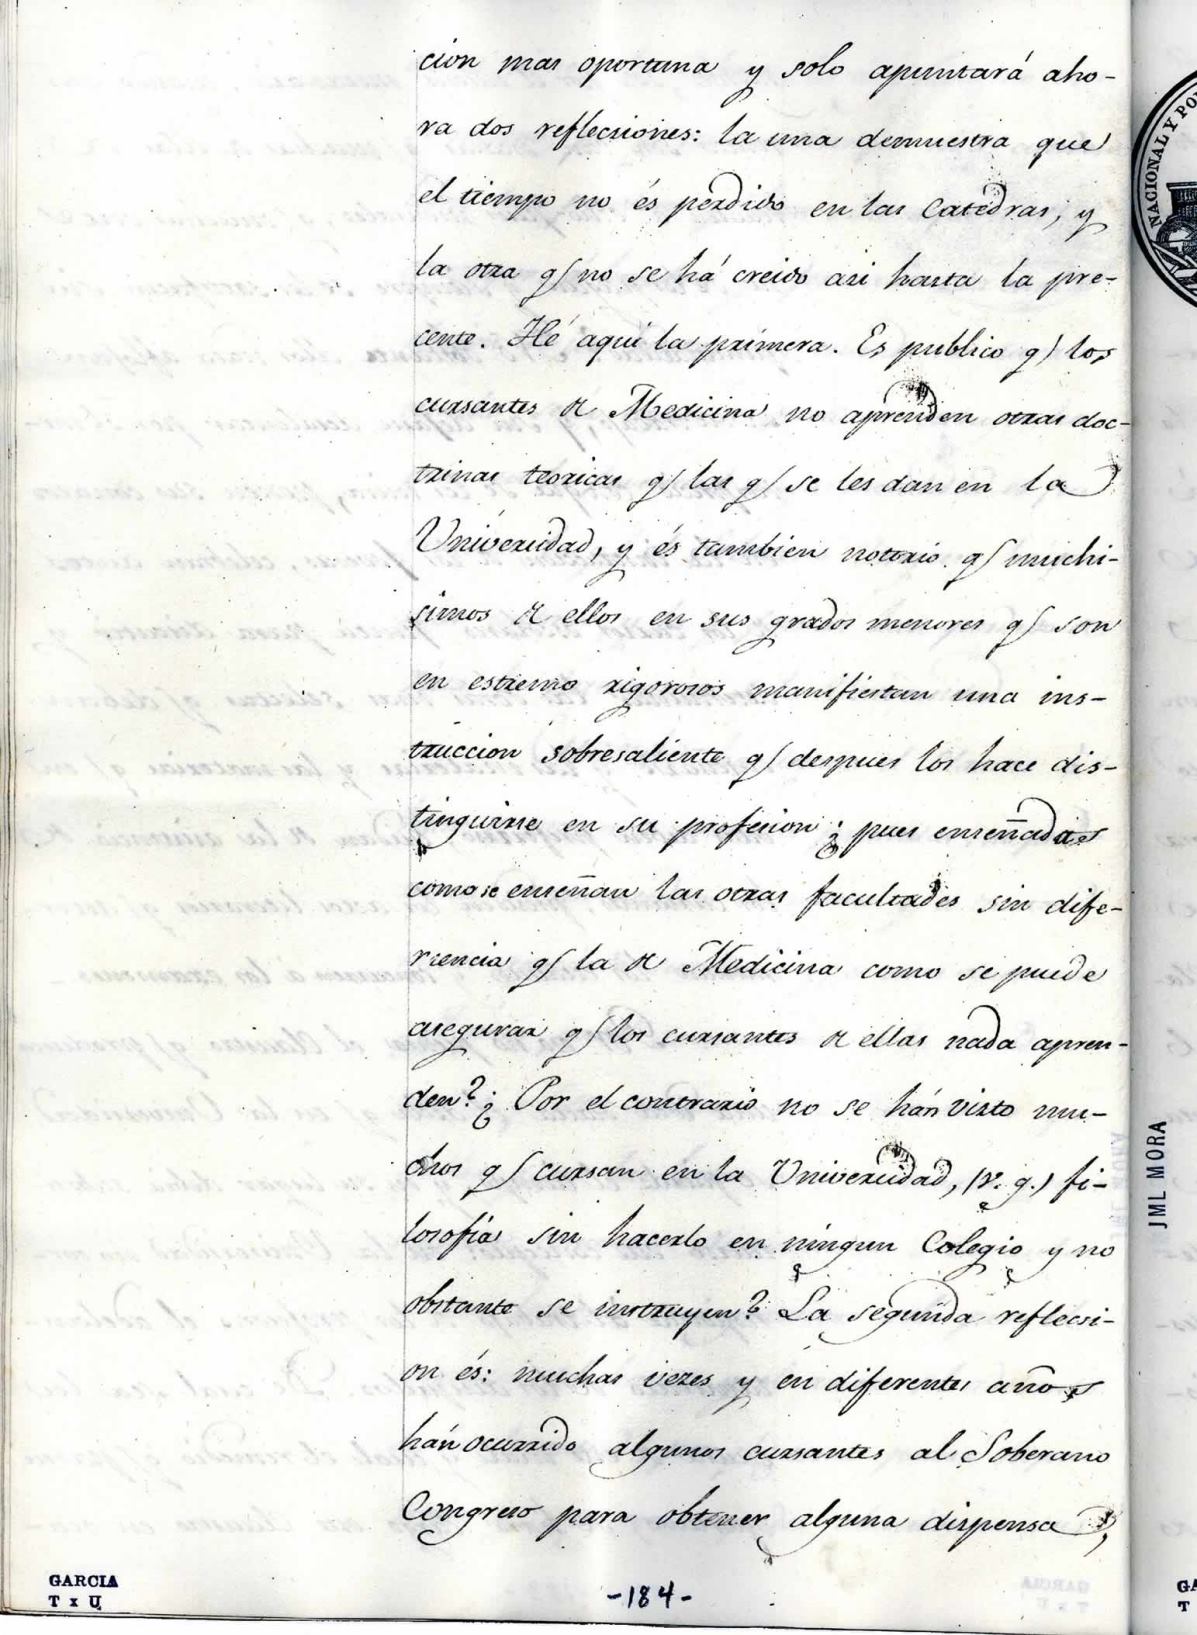 cion mas oportuna y solo apuntará aho-
ra dos reflecsiones: la una demuestra que
el tiempo no és perdido en las Catedras, y
la otra q. no se há creido asi hasta la pre-
cente. Hé aqui la primera. Es publico q. los
cursantes de Medicina no aprenden otras doc-
trinas teoricas q. las q. se les dan en la
Univercidad, y és tambien notorio q. muchi-
simos de ellos en sus grados menores q. son
en estremo rigorosos manifiestan una ins-
truccion sobresaliente q. despues los hace dis-
tinguirse en su profesion ¿pues enseñadas
como se enseñan las otras facultades sin dife-
riencia q. la de Medicina como se puede
asegurar q. los cursantes de ellas nada apren-
den? ¿Por el contrario no se hán visto mu-
chos q. cursan en la Univercidad, (v. g.) fi-
losofía sin hacerlo en ningun Colegio y no
obstante se instruyen? La segunda reflecsi-
on és: muchas vezes y en diferentes años
hán ocurrido algunos cursantes al Soberano
Congreso para obtener alguna dispensa,
-184-
GARCIA
T x U
NACIONAL Y PO
JML MORA
GA
T